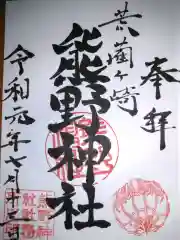 奉拝
共蘭ヶ崎
熊野神社
令和元年七月十三日